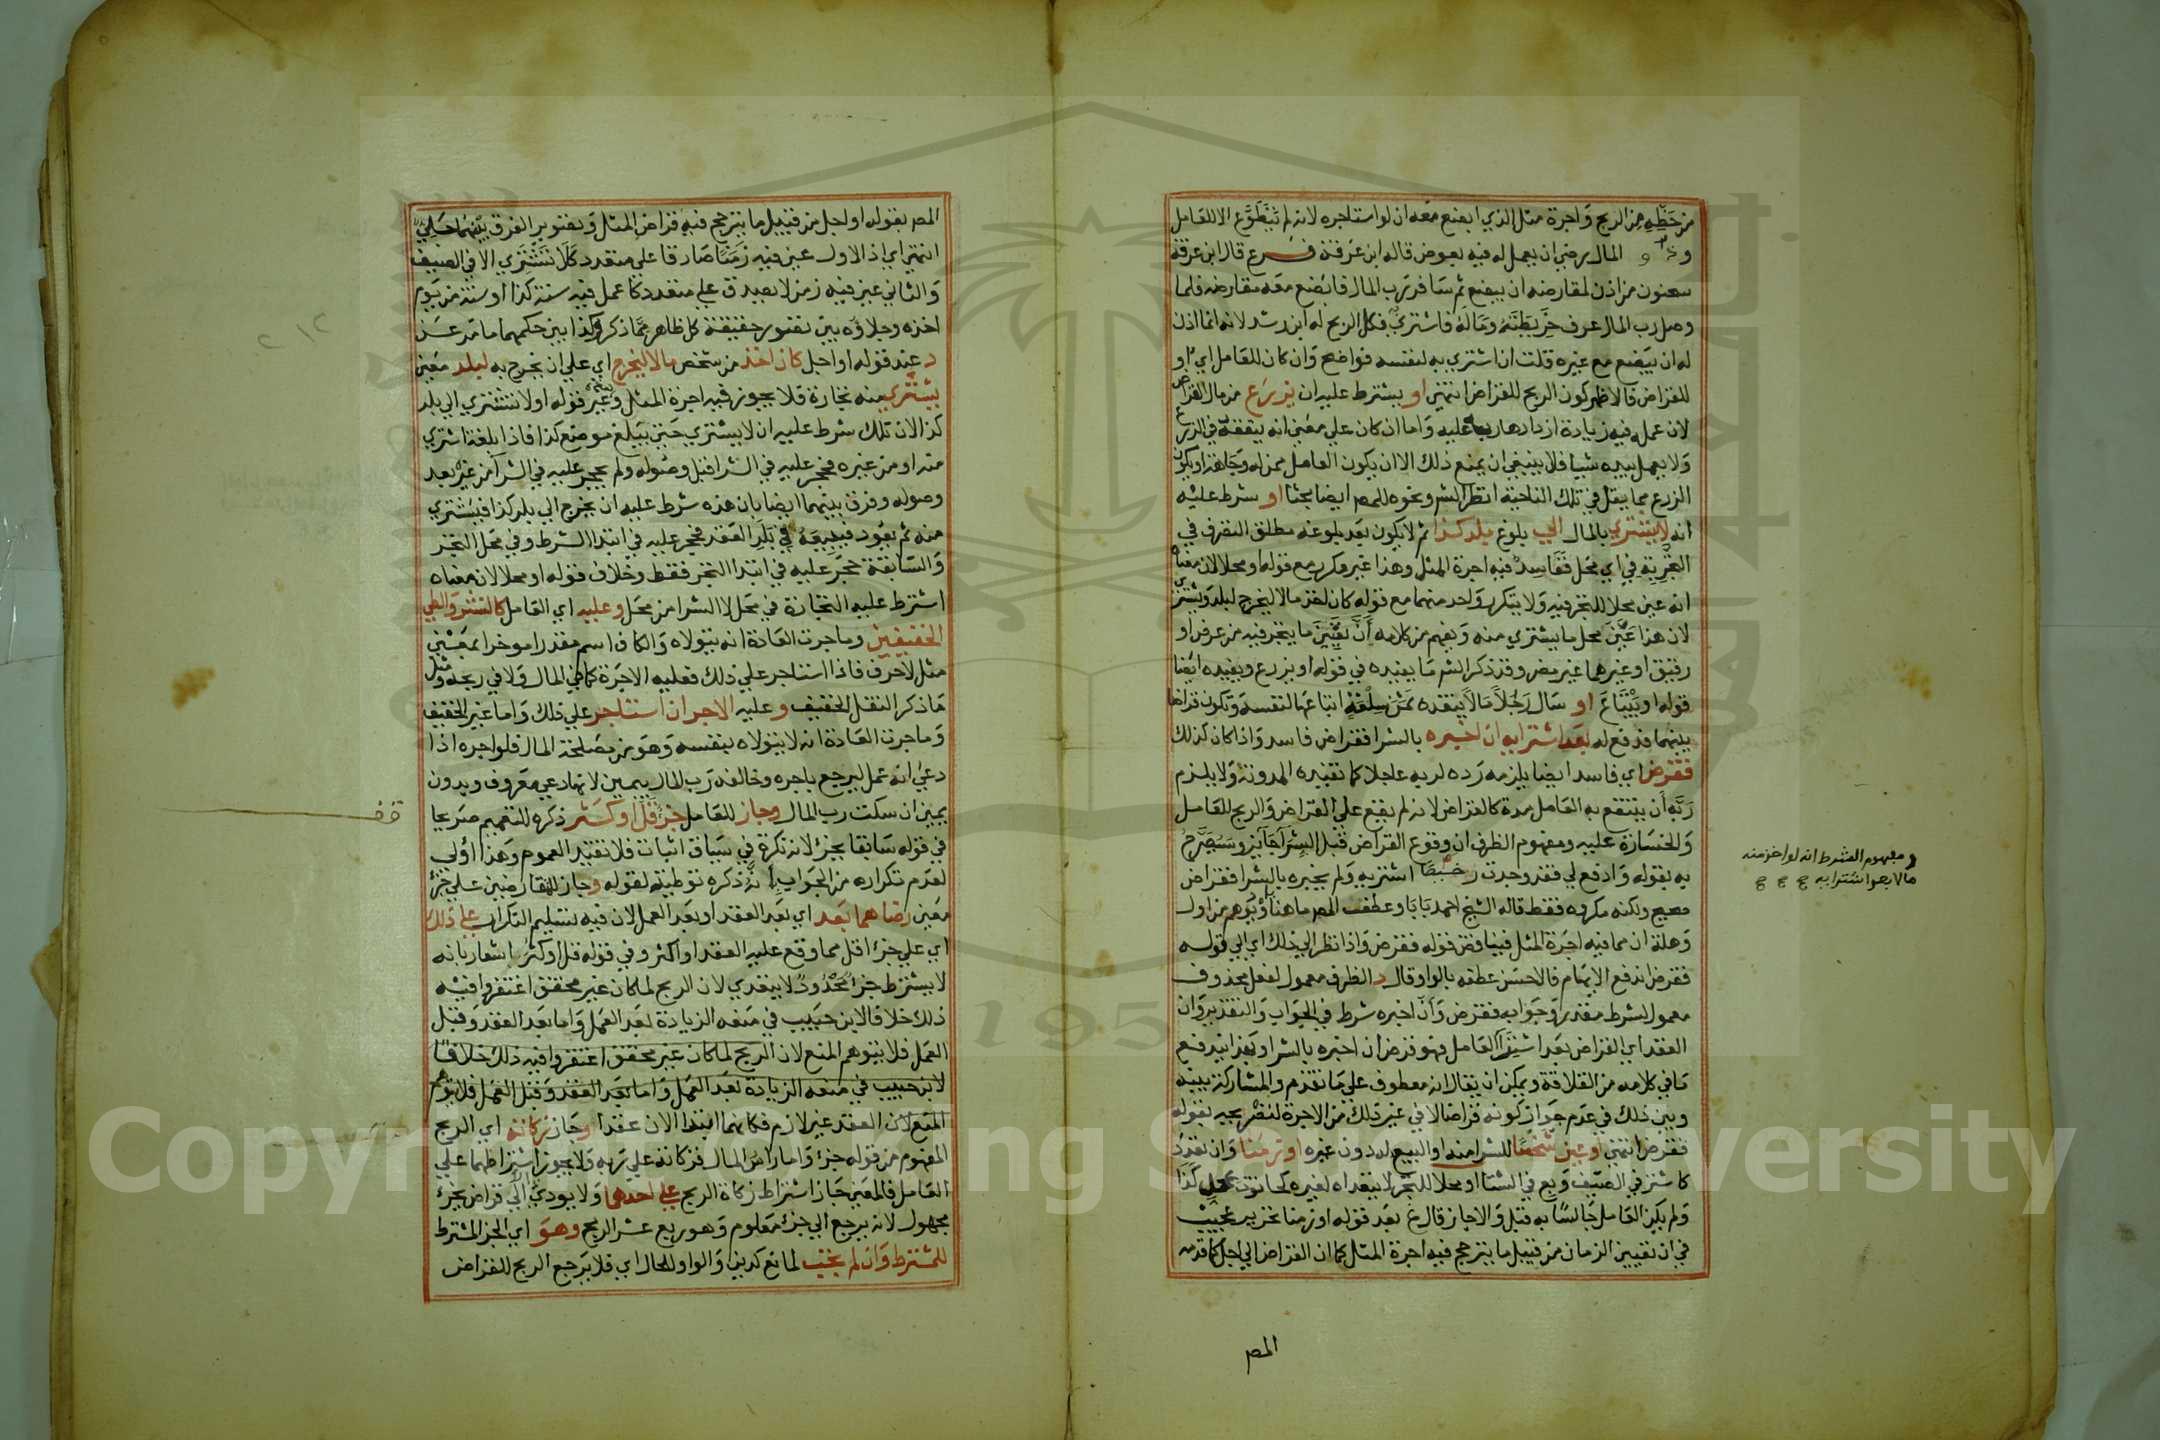 من حظه من الربح واجرة مثل الذي ابضع معه ان لو استاجره لانه لم يتطوع الا للعامل
المال يرضي ان يعمل له فيه بعوض قاله ابن عرفة فرع قال ابن عرفة
سحنون من اذن لمقارضه ان يبضع ثم سافر رب المال فابضع معه مقارضه فلما
وصل رب المال عرف خريطته وماله فاشتري فكل الربح له ابن رشد لانه انما اذن
له ان يبضع مع غيره قلت ان اشتري به لنفسه فواضح وان كان للعامل اي او
للقراض فالاظهر كون الربح للقراض انتهي او يشترط عليه ان يزرع من مال القراض
لان عمله فيه زيادة ازدادها رب عليه واما ان كان علي معني انه ينفقه في الزرع
ولا يعمل بيده شيا فلا ينبغي ان يمنع ذلك الا ان يكون العامل ممن له وجاهة او يكون
الزرع مما يقل في تلك الناحية انظر الشر ونحوه للمص ايضا بحثا او شرط عليه
انه لا يشتري بالمال الي بلوغ بلد كذا ثم لا يكون بعد بلوغه مطلق التصرف في
التجر به في اي محل ففاسد فيه اجرة المثل وهذا غير مكرر مع قوله او محلا لان معناه
انه عين محلا للتجر فيه ولا يتكرر واحد منهما مع قوله كان اخذ مالا ليخرج لبلد ويشتري
لان هذا عين محل ما يشتري منه ويفهم من كلامه ان تعيين ما يتجر فيه من عرض او
رقيق او غيرهما غير مضر وقد ذكر الشر ما يفيده في قوله او يزرع ويفيده ايضا
قوله او يبتاع او سال رجلا مالا ينقده ثمن سلعة ابتاعها لنفسه وتكون قراضا
بينهما فدفع له بعد اشترايه ان اخبره بالشرا فقراض فاسد واذا كان كذلك
فقرض اي فاسد ايضا يلزمه رده لربه عاجلا كما تفيده المدونة ولا يلزم
ربه ان ينتفع به العامل مدة كالقراض لانه لم يقع علي القراض والربح للعامل
والخسارة عليه ومفهوم الظرف ان وقوع القراض قبل الشرا جايز وسيصرح
به بقوله وادفع لي فقد وجدت رخيصا اشتريه ولم يخبره بالشرا فقراض
صحيح ولكنه مكروه فقط قاله الشيخ احمد بابا وعطف المص ما هنا او يوهم من اول
وهلة ان مما فيه اجرة المثل فينافض قوله فقرض واذا نظر الي ذلك اي الي قوله
فقرض اندفع الايهام فالاحسن عطفه بالواو وقال د الظرف معمول لفعل محذوف
معمول لشرط مقدر وجوابه فقرض وان اخبره شرط في الجواب والتقدير وان
العقد اي القراض بعد اشترا العامل فهو قرض ان اخبره بالشرا وبهذا يندفع
ما في كلامه من القلاقة ويمكن ان يقال انه معطوف علي ما تقدم والمشاركة بينه
وبين ذلك في عدم جواز كونه قراضا لا في غير ذلك من الاجرة لتصريحه بقوله
فقرض انتهي او عين شخصا للشرا منه او البيع له دون غيره او زمنا وان تعدد
كاشتر في الصيف وبع في الشتا او محلا للتجر لا يتعداه لغيره كحانوت بمحل كذا
ولم يكن العامل جالسا به قبل والا جاز قال غ بعد قوله او زمنا تحرير عجيب
في ان تعيين الزمان من قبيل ما يترجح فيه اجرة المثل كما ان القراض الي اجل كما قدمه
المص
ومفهوم الشرط انه لو اخذ منه
المص بقوله او اجل من قبيل ما يترجح فيه قراض المثل وبتقرير الفرق بينهما جلي
انتهي اي اذ الاول عين فيه زمنا صادقا علي متعدد كلا تشتري الا في الصيف
والثاني عين فيه زمن لا يصدق علي متعدد كاعمل فيه سنة كذا او سنة من يوم
اخذه وجلاؤه بين بتقرير حقيقة كل ظاهر مما ذكر وكذا بين حكمهما ما مر عن
د عند قوله او اجل كان اخذ من شخص مالا ليخرج اي علي ان يخرج به لبلد معين
يشتري منه تجارة فلا يجوز فيه اجرة المثل وغير قوله اولا تشتري الي بلد
كذا لان تلك شرط عليه ان لا يشتري حتي يبلغ موضع كذا فاذا بلغه اشتري
منه او من غيره فحجر عليه في الشرا قبل وصوله ولم يحجر عليه في الشرا من غيره بعد
وصوله وفرق بينهما ايضا بان هذه شرط عليه ان يخرج الي بلد كذا فيشتري
منه ثم يعود فيبيعه في بلد العقد فحجر عليه في ابتدا الشرط وفي محل التجر
والسابقة حجر عليه في ابتدا التجر فقط وخلاف قوله او محلا لان معناه
اشترط عليه التجارة في محل لا الشرا من محل وعليه اي العامل كالنشر والطي
الخفيفين وما جرت العادة انه يتولاه والكاف اسم مقدرا موخرا بمعني
مثل لا حرف فاذا استاجر علي ذلك فعليه الاجرة كما في المال ولا في ربحه ومثل
ما ذكر النقل الخفيف وعليه الاجر ان استاجر علي ذلك واما غير الخفيف
وما جرت العادة انه لا يتولاه بنفسه وهو من مصلحة المال فلو اجره اذا
دعي انه عمل ليرجع باجره وخالفه رب المال بيمين لانها دعي معروف وبدون
يمين ان سكت رب المال وجاز للعامل جزء قل او كثر ذكره للتعميم صريحا
في قوله سابقا بجزء لانه نكرة في سياق اثبات فلا تفيد العموم وهذا اولي
لعدم تكراره من الجواب انه ذكره توطية لقوله وجاز للمتقارضين علي جزء
معين رضاهما بعد اي بعد العقد او بعد العمل لان فيه تسليم التكرار علي ذلك
اي علي جزء اقل مما وقع عليه العقد او اكثر وفي قوله قل او كثر اشعار بانه
لا يشترط جزء محدود لا يتعدي لان الربح لما كان غير محقق اغتفروا فيه
ذلك خلافا لابن حبيب في منعه الزيادة بعد العمل واما بعد العقد وقبل
العمل فلا يتوهم المنع لان الربح لما كان غير محقق اغتفروا فيه ذلك خلافا
لابن حبيب في منعه الزيادة بعد العمل واما بعد العقد وقبل العمل فلا يتوهم
المنع لان العقد غير لازم فكانهما ابتدا الان عقدا وجاز زكاته اي الربح
المفهوم من قوله جزء واما راس المال فزكاته علي ربه ولا يجوز اشتراطها علي
العامل فالمعني جاز اشتراط زكاة الربح علي احدهما ولا يودي الي قراض بجزء
مجهول لانه يرجع الي جزء معلوم وهو ربع عشر الربح وهو اي الجزء المشترط
للمشترط وان لم تجب لمانع كدين والواو للحال اي فلا يرجع الربح للقراض
قف